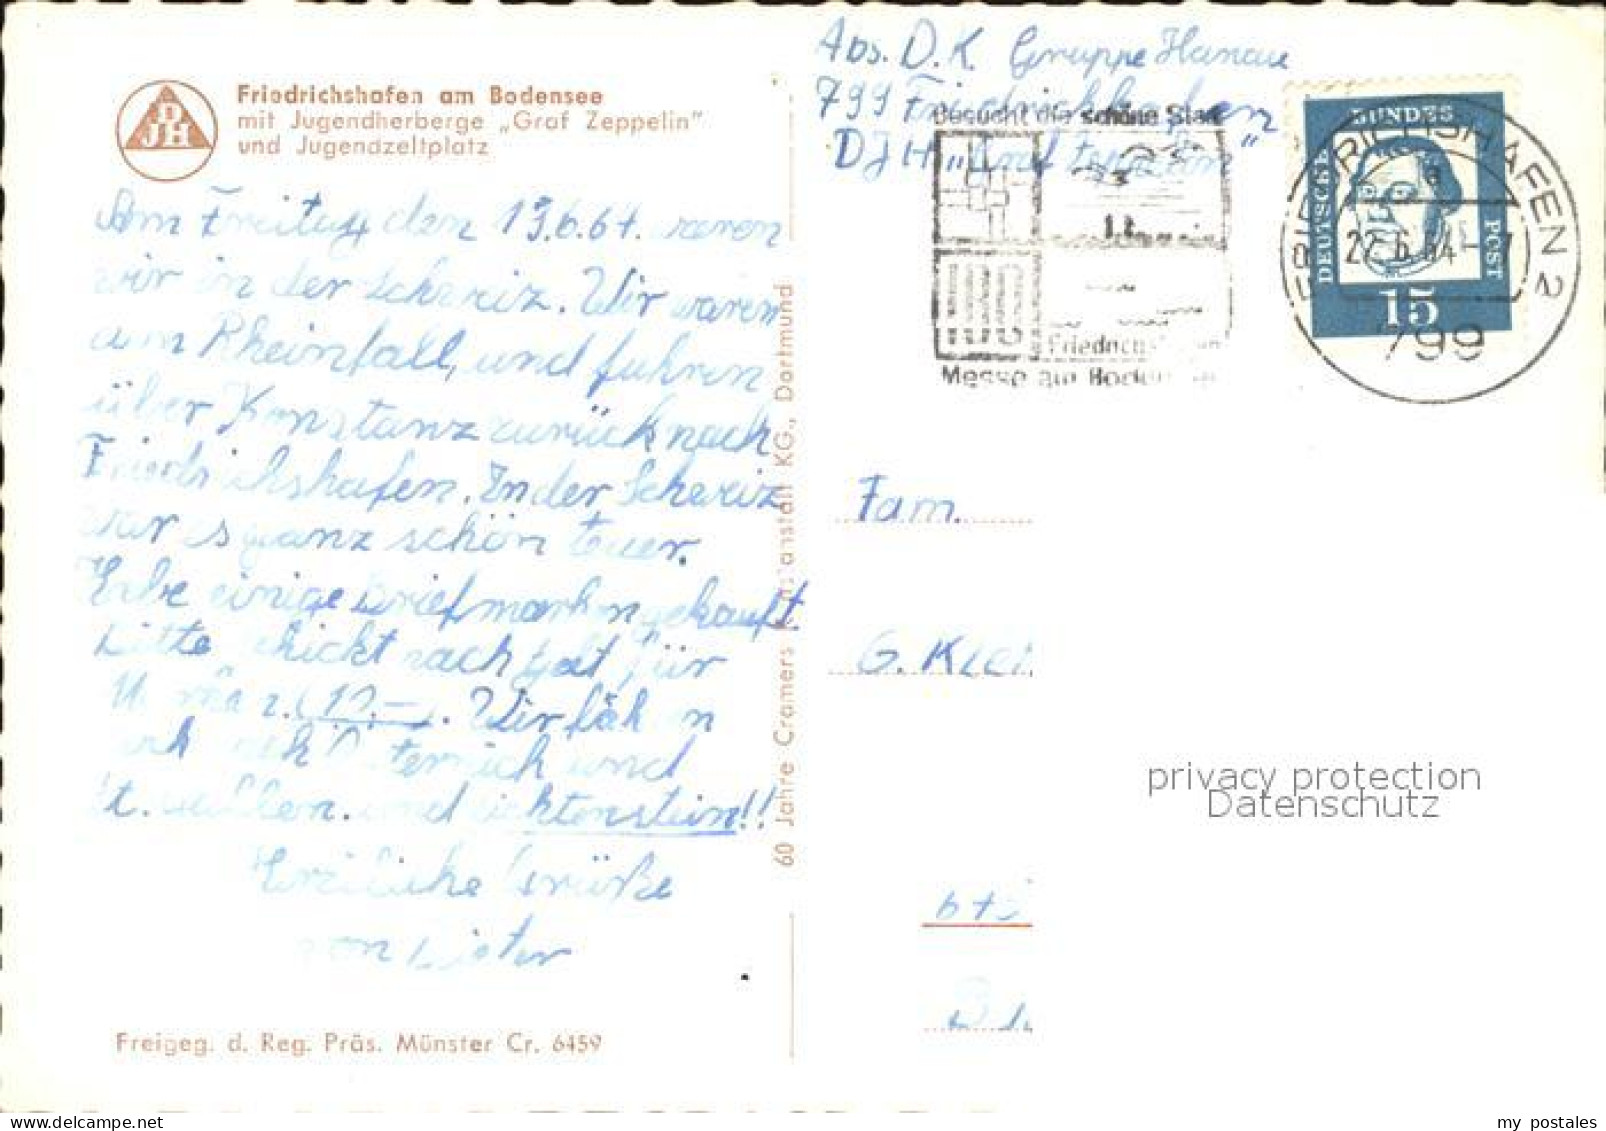 Friedrichshafen am Bodensee
mit Jugendherberge „Graf Zeppelin"
und Jugendzeltplatz
DJH
Am Freitag den 19.6.64. waren
wir in der Schweiz. Wir waren
am Rheinfall, und fuhren
über Konstanz zurück nach
Friedrichshafen. In der Schweiz
war es ganz schön teuer.
Habe einige Briefmarken gekauft.
Bitte schickt noch Geld für
(10.—). Wir fahren
Österreich und
St. Gallen. und Lichtenstein!!
Herzliche Grüße
von Dieter
Freigeg. d. Reg. Präs. Münster Cr. 6459
60 Jahre Cramers Kunstanstalt KG., Dortmund
Abs. D.K. Gruppe Hanau
799 Friedrichshafen
DJH „Graf Zeppelin"
Besucht die schöne Stadt
Friedrichshafen
Messe am Bodensee
DEUTSCHE BUNDESPOST
15
FRIEDRICHSHAFEN 2
a
22.6.64-
799
Fam.
G. Klei
privacy protection
Datenschutz
my postales